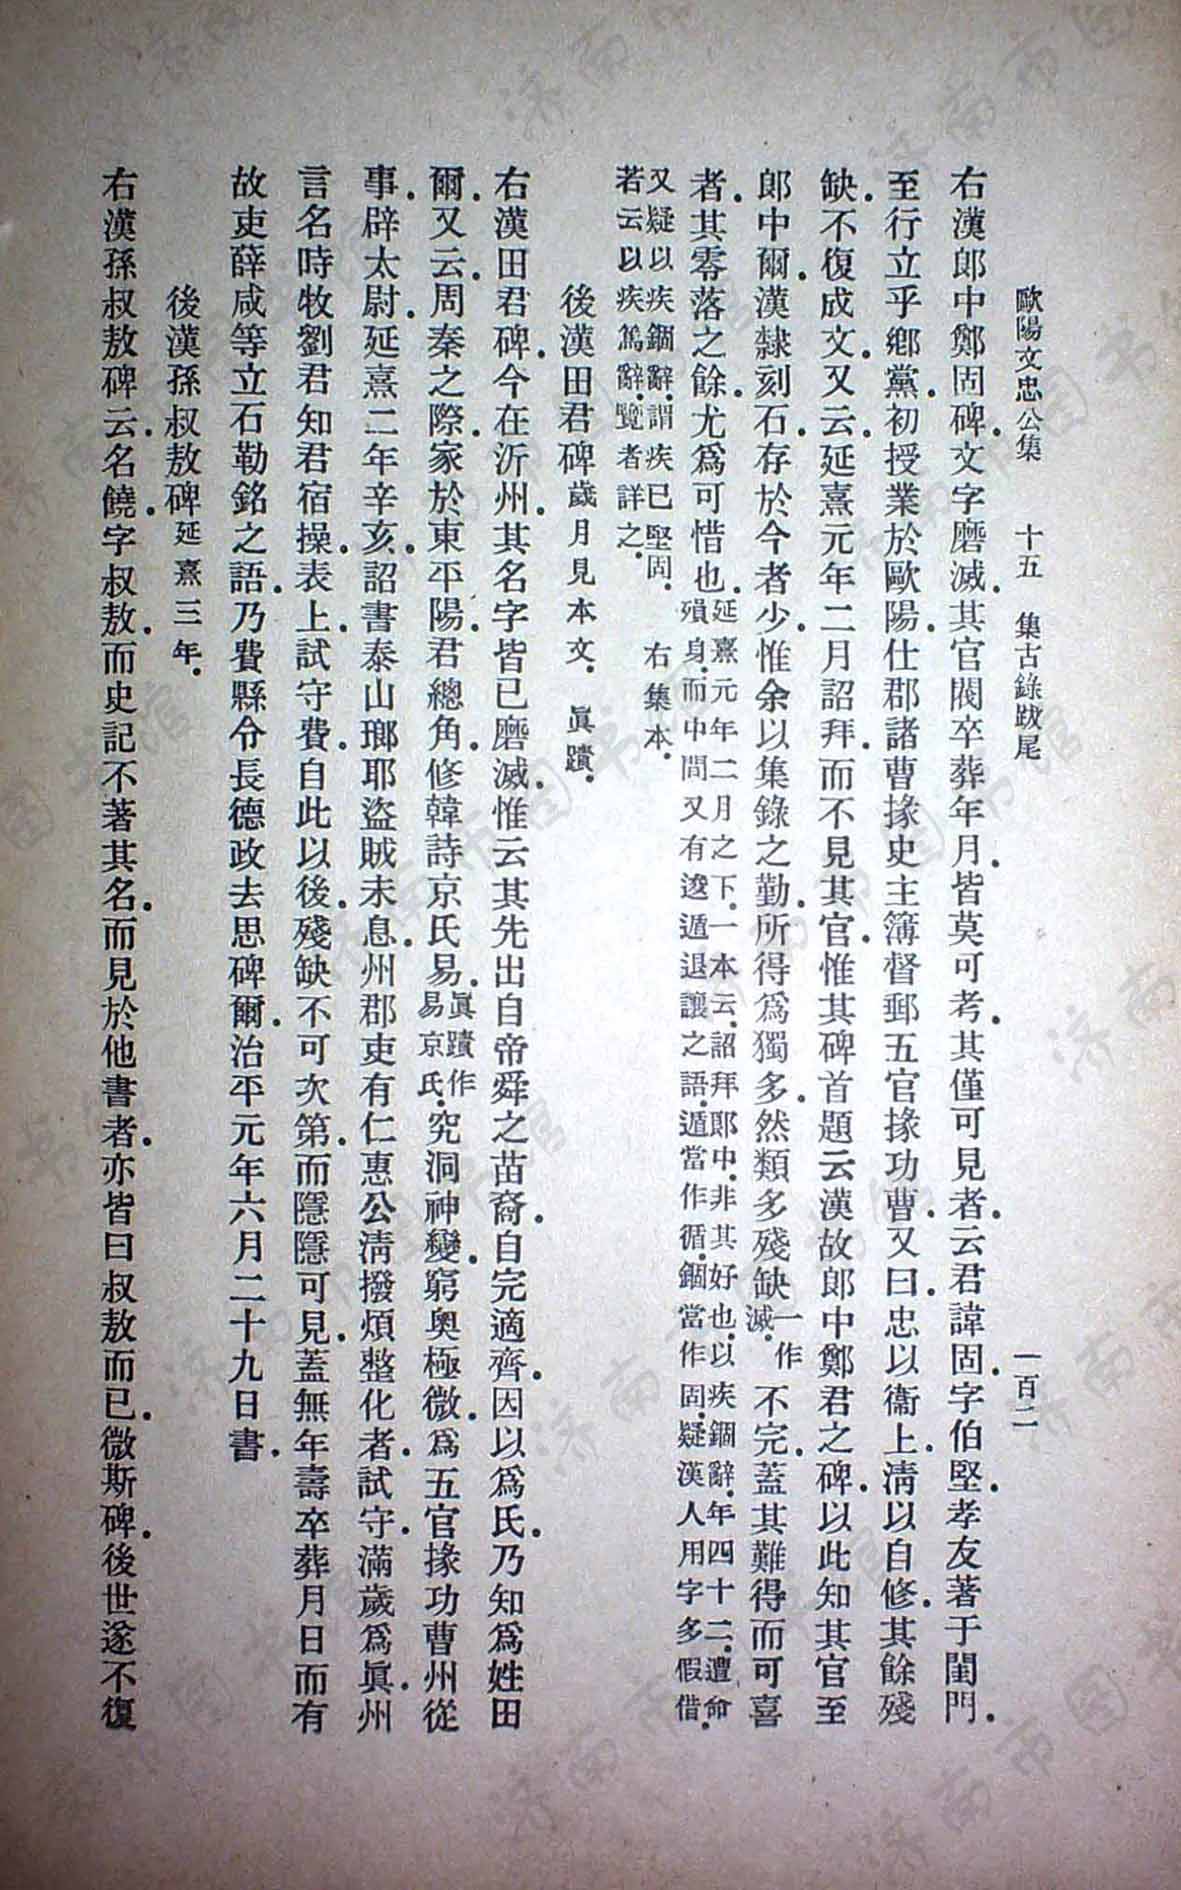 歐陽文忠公集　十五　集古錄跋尾　一百二
右漢郎中鄭固碑.文字磨滅.其官閥卒葬年月.皆莫可考.其僅可見者.云君諱固.字伯堅.孝友著于閨門.
至行立乎鄉黨.初授業於歐陽.仕郡諸曹掾史主簿督郵五官掾功曹.又曰.忠以衞上.淸以自修.其餘殘
缺.不復成文.又云.延熹元年二月詔拜.而不見其官.惟其碑首題云漢故郎中鄭君之碑.以此知其官至
郎中爾.漢隸刻石.存於今者少.惟余以集錄之勤.所得爲獨多.然類多殘缺一作
滅.不完.蓋其難得而可喜
者.其零落之餘.尤爲可惜也.延熹元年二月之下.一本云.詔拜郎中.非其好也.以疾錮辭.年四十二.遭命
殞身.而中間又有逡遁退讓之語.遁當作循.錮當作固.疑漢人用字多假借.
又疑以疾錮辭.謂疾已堅固.
若云以疾篤辭.覽者詳之.　右集本.
後漢田君碑歲月見本文.　眞蹟.
右漢田君碑.今在沂州.其名字皆已磨滅.惟云其先出自帝舜之苗裔.自完適齊.因以爲氏.乃知爲姓田
爾.又云.周秦之際.家於東平陽.君總角.修韓詩京氏易.眞蹟作
易京氏.究洞神變.窮奧極微.爲五官掾功曹州從
事.辟太尉.延熹二年辛亥.詔書泰山瑯耶盜賊未息.州郡吏有仁惠公淸撥煩整化者.試守.滿歲爲眞.州
言名時牧劉君知君宿操.表上.試守費.自此以後.殘缺不可次第.而隱隱可見.蓋無年壽卒葬月日而有
故吏薛咸等立石勒銘之語.乃費縣令長德政去思碑爾.治平元年六月二十九日書.
後漢孫叔敖碑延熹三年.
右漢孫叔敖碑云.名饒.字叔敖.而史記不著其名.而見於他書者.亦皆曰叔敖而已.微斯碑.後世遂不復